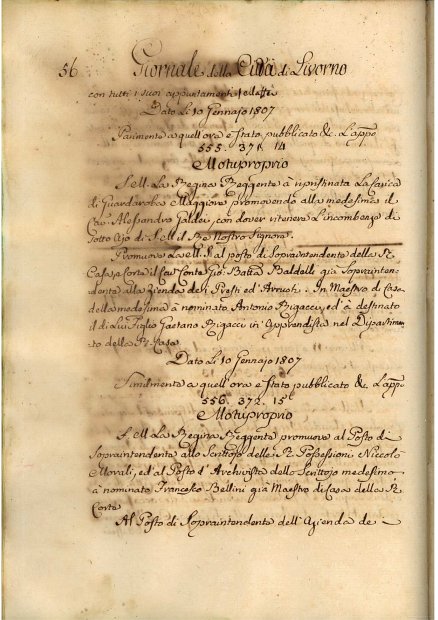 56 Giornale della Città di Livorno
con tutti i suoi appuntamenti, ed affi
Dato Li 10 Gennajo 1807
Parimente a quell'ora è stato pubblicato &c. L'app.º
555. 371. 14
Motuproprio
S. M. La Regina Reggente à ripristinata La Carica
di Guardaroba Maggiore promovendo alla medesima il
Cav. Alessandro Galilei, con dover ritenere L'incombenza di
Sotto Ajo di S. M. il Re Nostro Signore.
Promuove La M. S. al posto di Sopraintendente della R.
Casa e Corte il Cav. Conte Gio: Batta Baldelli già Soprainten-
dente alla Azienda dei Presti ed Arruoti. In Maestro di Casa
della medesima à nominato Antonio Rigacci, ed à destinato
il di Lui Figlio Gaetano Rigacci in Apprendista nel Dipartimen-
to della R. Casa.
Dato Li 10 Gennajo 1807
Similmente a quell'ora è stato pubblicato &c. L'app.º
556. 372. 15
Motuproprio
S. M. La Regina Reggente promuove al Posto di
Sopraintendente allo Scrittojo delle R. Possessioni, Niccolò
Morali, ed al Posto d'Archivista dello Scrittojo medesimo
à nominato Francesco Bellini già Maestro di Casa della R.
Corte
Al Posto di Sopraintendente dell'Azienda de